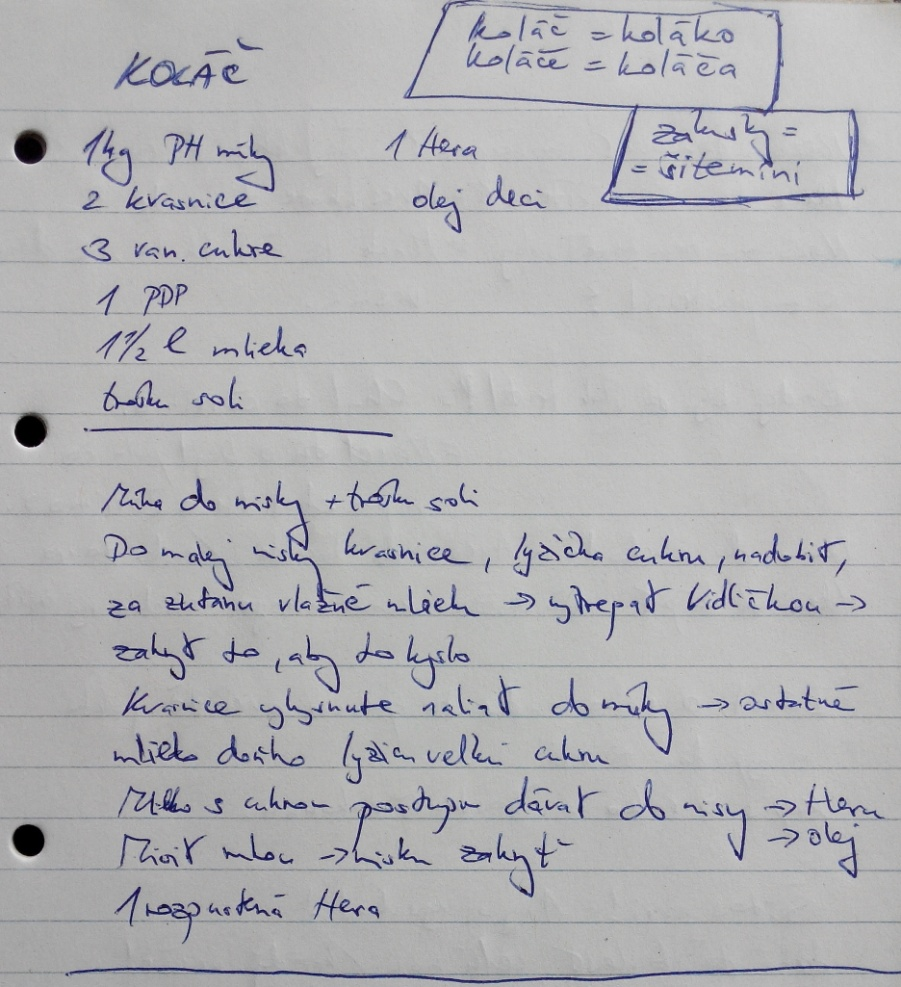 KOLÁČ
koláč = koláko
koláče = koláča
zákusky =
= šitemini
1kg PH múky
2 kvasnice
3 van. cukre
1 PDP
1 1/2 l mlieka
trošku soli
1 Hera
olej deci
Múka do misky + trošku soli
Do malej misky kvasnice, lyžička cukru, nadrobiť,
za vlažné mliek → vytrepať vidličkou →
zakryť to, aby to kyslo
Kvasnice vykysnute naliať do múky → ostatné
mlieko doňho lyžicu veľkú cukru
Mlieko s cukrom postupne dávať do misy → Heru
→ olej
Miesiť → misku zakryť
1 rozpustená Hera